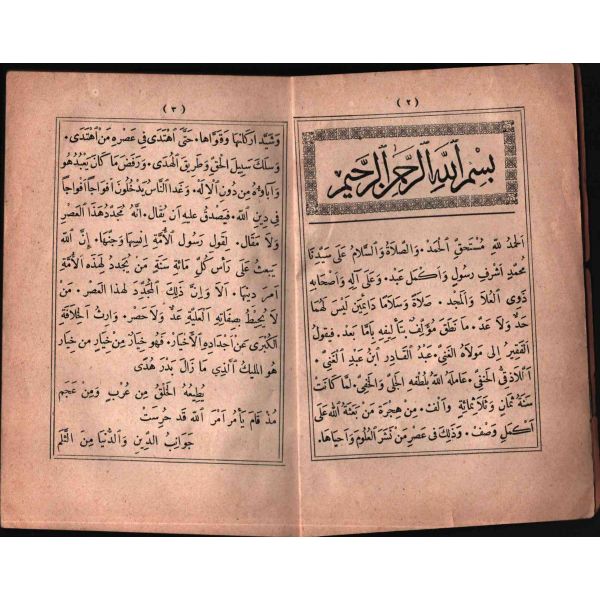 ( ٢ )
بسم الله الرحمن الرحيم
الحمد لله مستحق الحمد. والصلاة والسلام على سيدنا
محمد اشرف رسول واكمل عبد. وعلى آله واصحابه
ذوي العلا والمجد. صلاة وسلاما دائمين ليس لهما
حد ولا عد. ما نطق مؤلف بتأليفه باما بعد. فيقول
الفقير الى مولاه الغني عبد القادر ابن عبد الغني.
اللاذقي الحنفي. عامله الله بلطفه الجلي والخفي. لما كانت
سنة ثمان وثلاثمائة والف. من هجرة من بعثه الله على
اكمل وصف. وذلك في عصر من نشر العلوم واحياها.
( ٣ )
وشيد اركانها وقواها. حتى اهتدى في عصره من اهتدى.
وسلك سبيل الحق وطريق الهدى. ورفض ما كان يعبد هو
وآباؤه من دون الاله. وغدا الناس يدخلون افواجا افواجا
في دين الله. فيصدق عليه ان يقال. انه مجدد هذا العصر
ولا مقال. لقول رسول الامة انسها وجنها. ان الله
يبعث على رأس كل مائة سنة من يجدد لهذه الامة
امر دينها. الا وان ذلك المجدد لهذا العصر. من
لا يحيط بصفاته العلية عد ولا حصر. وارث الخلافة
الكبرى عن اجداده الاخيار. فهو خيار من خيار من خيار
هو المليك الذي ما زال بدر هدى
يطيعه الخلق من عرب ومن عجم
مذ قام يأمر امر الله قد حرست
جوانب الدين والدنيا من الثلم